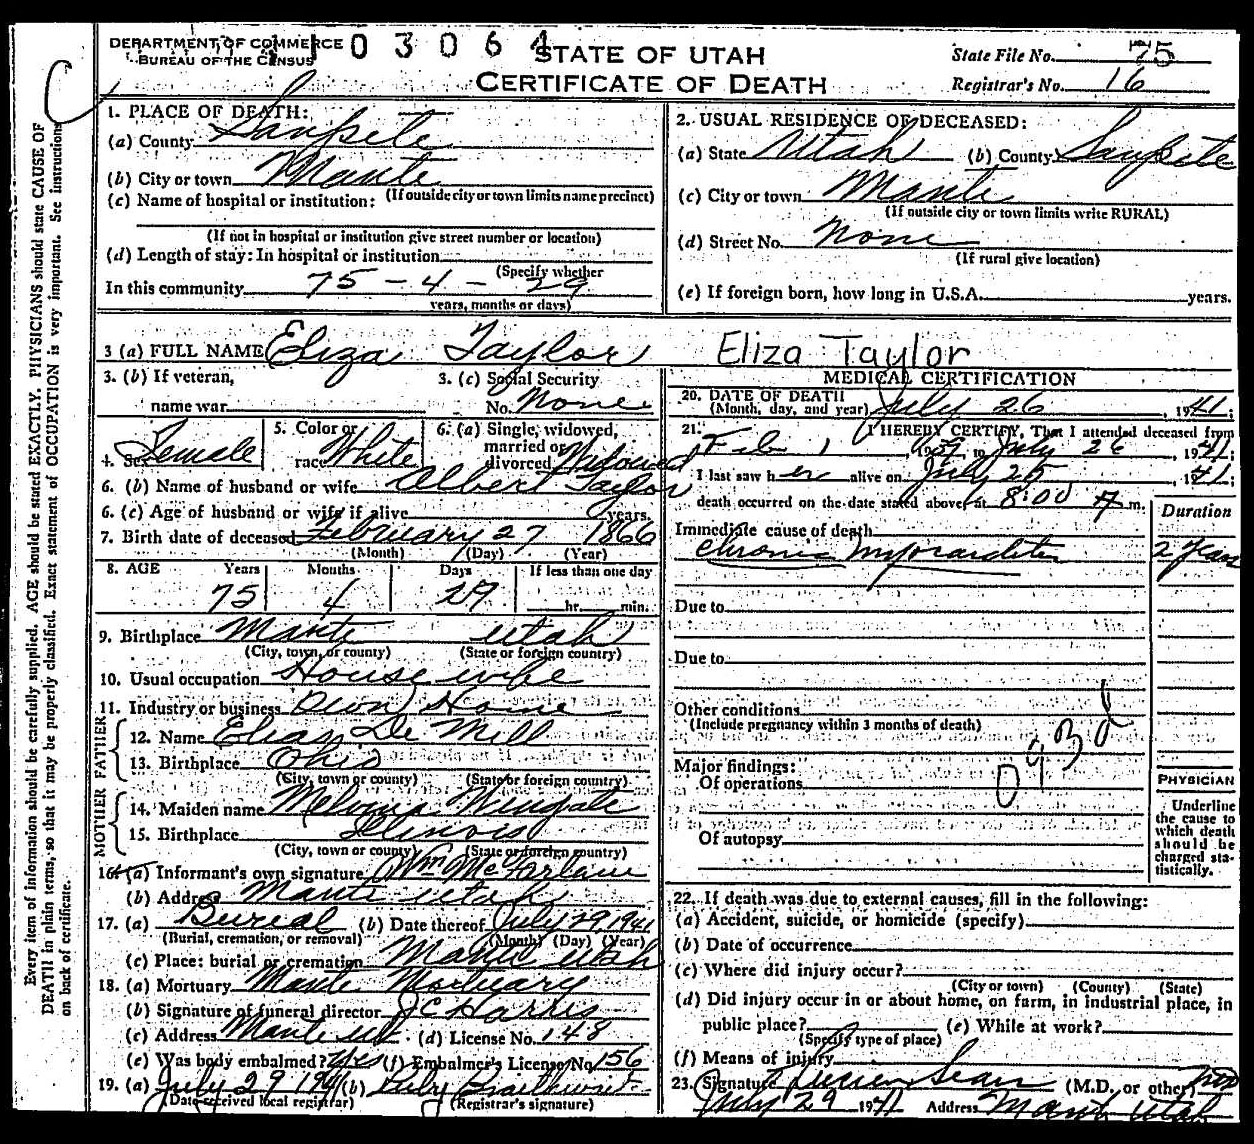 DEPARTMENT OF COMMERCE
BUREAU OF THE CENSUS
03064
STATE OF UTAH
CERTIFICATE OF DEATH
State File No. 75
Registrar's No. 16
1. PLACE OF DEATH:
(a) County Sanpete
(b) City or town Manti
(If outside city or town limits name precinct)
(c) Name of hospital or institution:
(If not in hospital or institution give street number or location)
(d) Length of stay: In hospital or institution
(Specify whether
In this community 75 - 4 - 29
years, months or days)
2. USUAL RESIDENCE OF DECEASED:
(a) State Utah (b) County Sanpete
(c) City or town Manti
(If outside city or town limits write RURAL)
(d) Street No. None
(If rural give location)
(e) If foreign born, how long in U.S.A. years.
3 (a) FULL NAME Eliza Taylor Eliza Taylor
3. (b) If veteran,
name war
3. (c) Social Security
No. None
4. Sex Female
5. Color or
race White
6. (a) Single, widowed,
married or
divorced Widowed
6. (b) Name of husband or wife Albert Taylor
6. (c) Age of husband or wife if alive years.
7. Birth date of deceased February 27 1866
(Month) (Day) (Year)
8. AGE Years Months Days If less than one day
75 4 29 hr. min.
9. Birthplace Manti Utah
(City, town, or county) (State or foreign country)
10. Usual occupation Housewife
11. Industry or business Own Home
FATHER
12. Name Elias De Mill
13. Birthplace Ohio
(City, town or county) (State or foreign country)
MOTHER
14. Maiden name Melvina Wingate
15. Birthplace Illinois
(City, town or county) (State or foreign country)
16. (a) Informant's own signature Wm McFarlane
(b) Address Manti Utah
17. (a) Burial (b) Date thereof July 29, 1941
(Burial, cremation, or removal) (Month) (Day) (Year)
(c) Place: burial or cremation Manti Utah
18. (a) Mortuary Manti Mortuary
(b) Signature of funeral director J C Harris
(c) Address Manti Ut (d) License No. 148
(e) Was body embalmed? Yes (f) Embalmer's License No. 156
19. (a) July 29 1941 (b)
(Date received local registrar) (Registrar's signature)
MEDICAL CERTIFICATION
20. DATE OF DEATH
(Month, day, and year) July 26, 1941;
21. I HEREBY CERTIFY, That I attended deceased from
Feb 1, to July 26, 1941;
I last saw her alive on July 25, 1941;
death occurred on the date stated above, at 8:00 A m.
Duration
Immediate cause of death
Chronic Myocarditis 2 years
Due to
Due to
Other conditions
(Include pregnancy within 3 months of death)
093d
Major findings:
Of operations
Of autopsy
PHYSICIAN
Underline
the cause to
which death
should be
charged sta-
tistically.
22. If death was due to external causes, fill in the following:
(a) Accident, suicide, or homicide (specify)
(b) Date of occurrence
(c) Where did injury occur?
(City or town) (County) (State)
(d) Did injury occur in or about home, on farm, in industrial place, in
public place? (e) While at work?
(Specify type of place)
(f) Means of injury
23. Signature (M.D. or other)
July 29 1941 Address Manti Utah
Every item of information should be carefully supplied. AGE should be stated EXACTLY. PHYSICIANS should state CAUSE OF
DEATH in plain terms, so that it may be properly classified. Exact statement of OCCUPATION is very important. See instructions
on back of certificate.